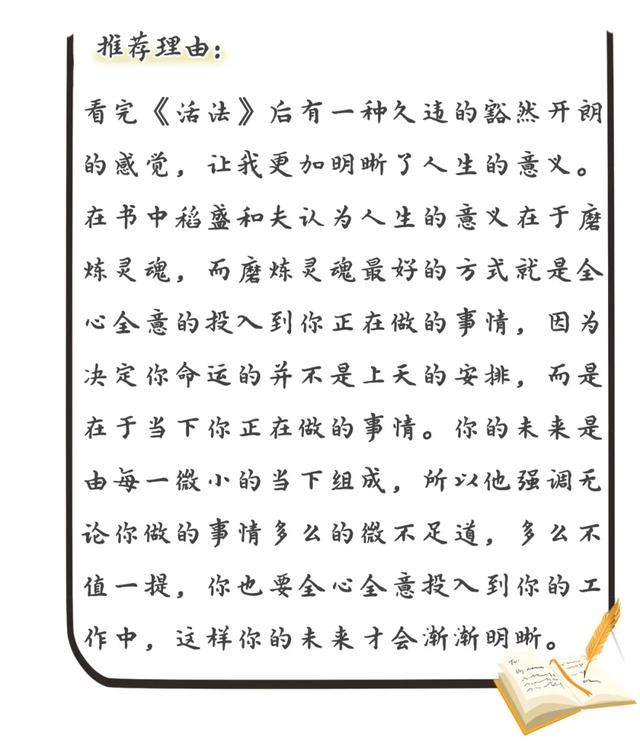 推荐理由：
看完《活法》后有一种久违的豁然开朗
的感觉，让我更加明晰了人生的意义。
在书中稻盛和夫认为人生的意义在于磨
炼灵魂，而磨炼灵魂最好的方式就是全
心全意的投入到你正在做的事情，因为
决定你命运的并不是上天的安排，而是
在于当下你正在做的事情。你的未来是
由每一微小的当下组成，所以他强调无
论你做的事情多么的微不足道，多么不
值一提，你也要全心全意投入到你的工
作中，这样你的未来才会渐渐明晰。
To: